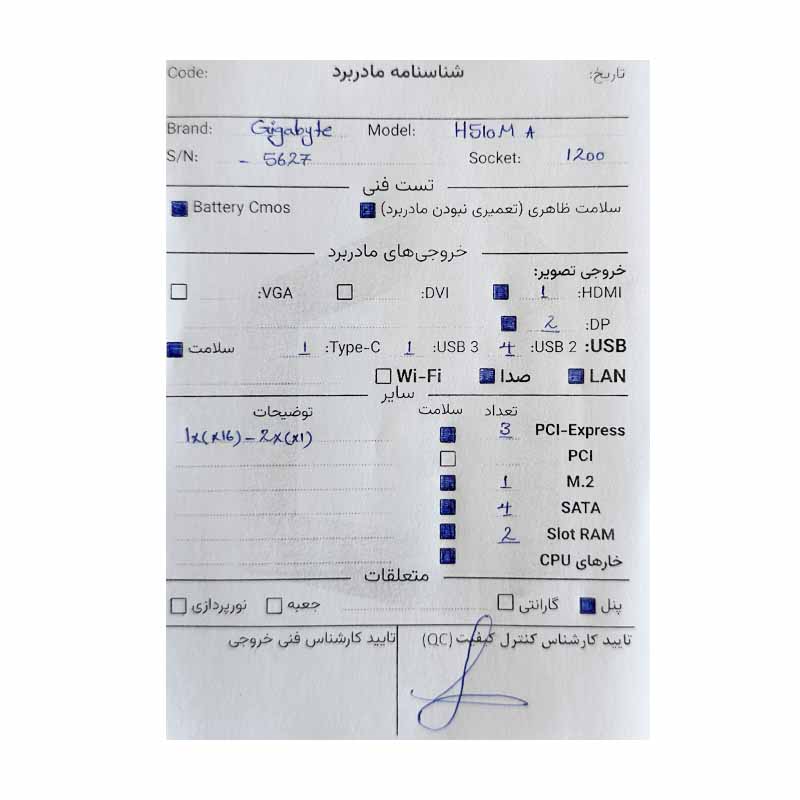 Code: شناسنامه مادربرد تاریخ:
Brand: Gigabyte Model: H510M A
S/N: - 5627 Socket: 1200
تست فنی
سلامت ظاهری (تعمیری نبودن مادربرد) Battery Cmos
خروجی‌های مادربرد
خروجی تصویر:
HDMI: 1 DVI: VGA:
DP: 2
USB: USB 2: 4 USB 3: 1 Type-C: 1 سلامت
LAN صدا Wi-Fi
سایر
تعداد سلامت توضیحات
PCI-Express 3 1x(x16) - 2x(x1)
PCI
M.2 1
SATA 4
Slot RAM 2
خارهای CPU
متعلقات
پنل گارانتی جعبه نورپردازی
تایید کارشناس کنترل کیفیت (QC) تایید کارشناس فنی خروجی